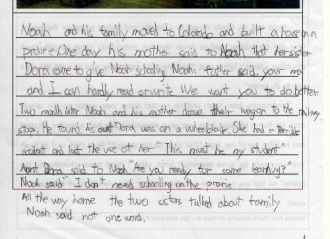 Noah and his family moved to Colorado and built a house on a
prairie One day his mother said to Noah that her sister
Dora come to give Noah schooling Noahs father said, your mo
and I can hardly read or write We want you to do better.
Two month later Noah and his mother drove their wagon to the railway
stop. He found his aunt Dora was on a wheelchair. She had a terrible
accident and lost the use of her "This must be my student"
Aunt Dora said to Noah "Are you ready for some learning?"
Noah said "I don't need schooling on the prairie
All the way home the two sisters talked about family
Noah said not one word.